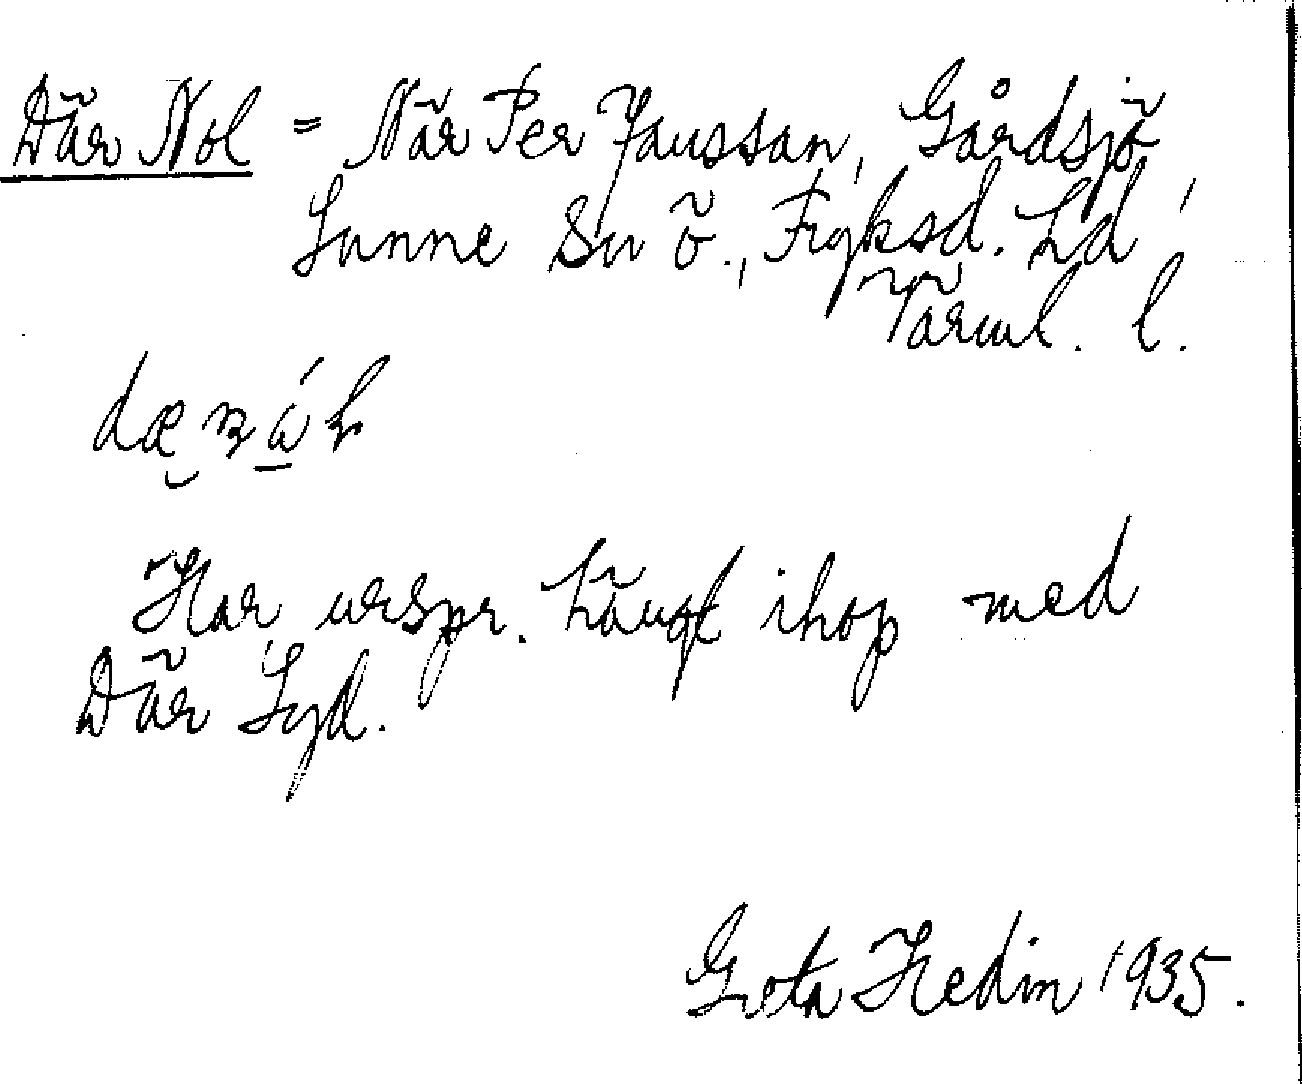 Där Nol = När Per Jansson, Gårdsjö,
Sunne Sn ö., Fryksd. Hd
Värml. l.
Har urspr. hängt ihop med
Där Syd.
Greta Hedin 1935.